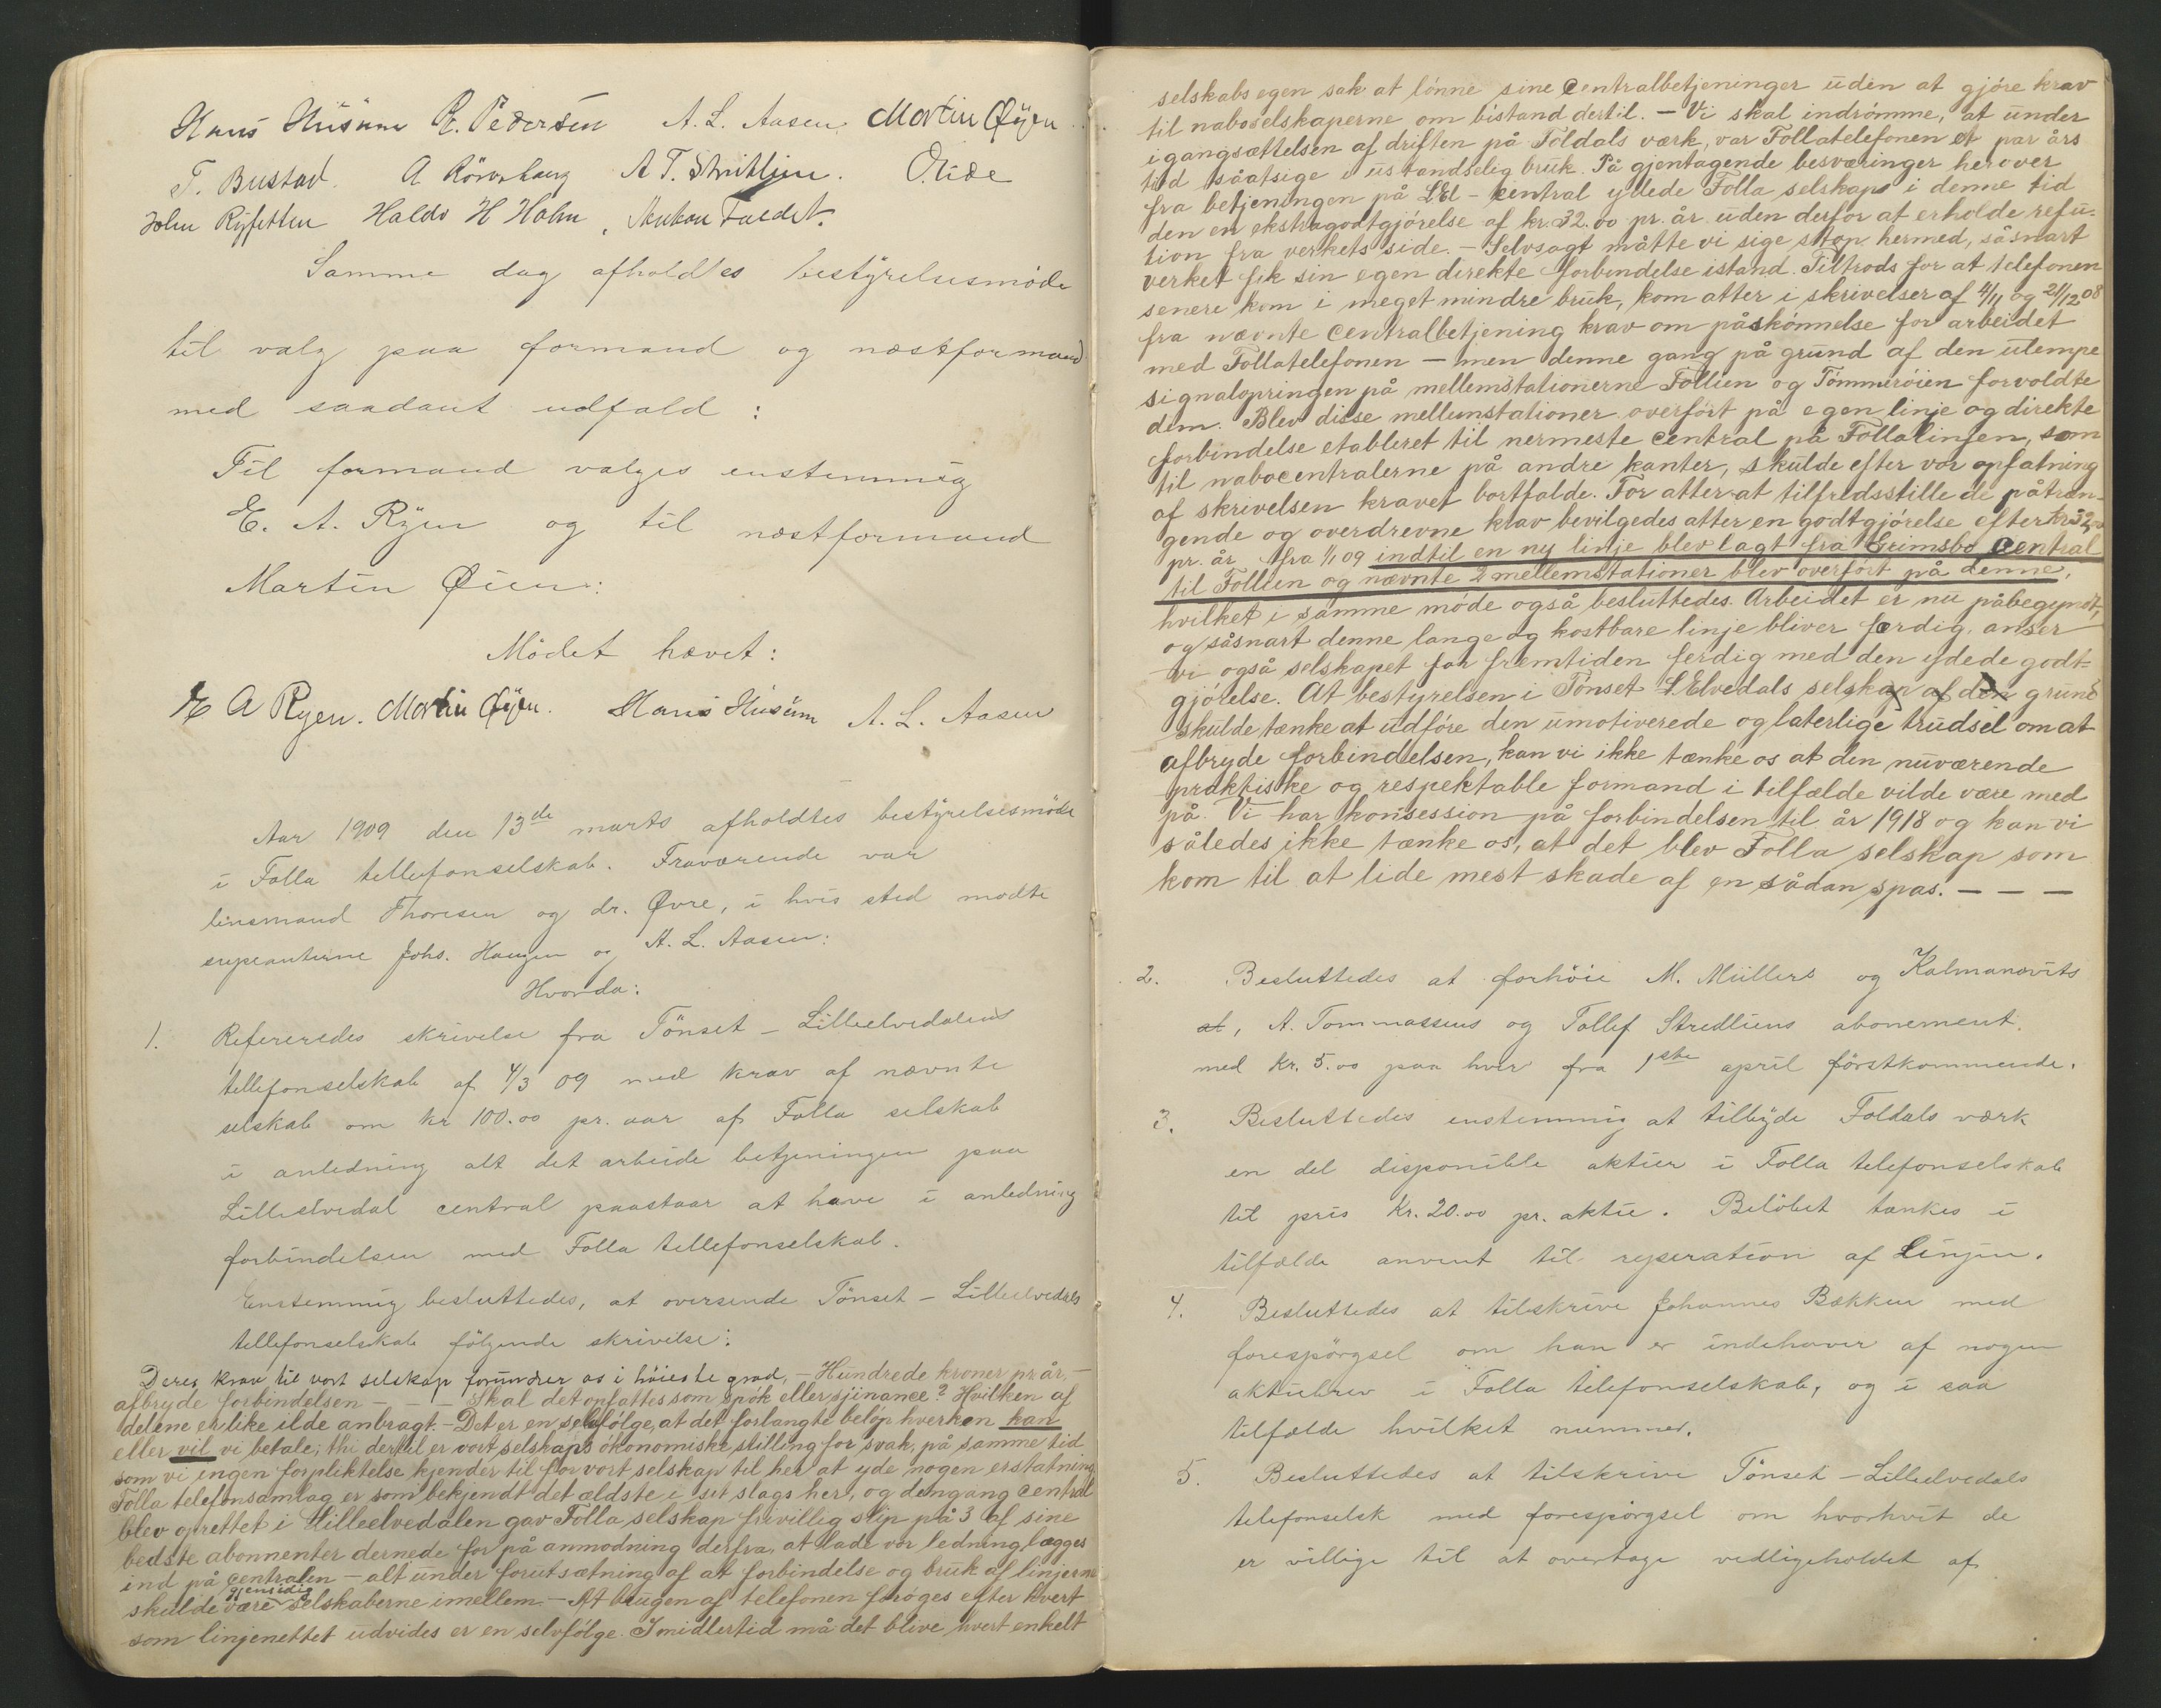 Hans Husum P. Pedersen A. L. Aasen Martin Øyen
T. Bustad. A A T. Streitlien. O. Ude
John Ryfetten Haldo H Holm, Faldet.
Samme dag afholdtes bestyrelsesmöde
til valg paa formand og næstformand
med saadant udfald:
Til formand valges enstemmig
E. A. Ryen og til næstformand
Martin Øien:
Mödet hævet:
E A Ryen. Martin Øyen. Hans Husum A. L. Aasen
Aar 1909 den 13de marts afholdtes bestyrelsesmöde
i Folla tellefonselskab. Fraværende var
linsmand Thoresen og dr. Øvre, i hvis sted modte
supeanterne Johs. Haugen og A. L. Aasen:
Hvorda:
1. Refereredes skrivelse fra Tönset - Lilleelvedalens
tellefonselskab af 4/3 09 med krav af nævnte
selskab om kr 100.00 pr. aar af Folla selskab
i anledning alt det arbeide betjeningen paa
Lilleelvedal central paastaar at have i anledning
forbindelsen med Folla tellefonselskab.
Enstemmig besluttedes, at oversende Tönset - Lilleelvedals
tellefonselskab fölgende skrivelse:
Deres krav til vort selskap forundrer os i höieste grad, - Hundrede kroner pr år, -
afbryde forbindelsen - - - Skal det opfattes som spök eller sjinance? Hvilken af
delene er like ilde anbragt. - Det er en selvfölge, at det forlangte belöp hverken kan
eller vil vi betale; thi dertil er vort selskaps ökonomiske stilling for svak, på samme tid
som vi ingen forpliktelse kjender til for vort selskap til her at yde nogen erstatning
Folla telefonsamlag er som bekjendt det ældste i sit slags her, og dengang central
blev oprettet i Lilleelvedalen gav Folla selskap frivillig slip på 3 af sine
bedste abonnenter dernede for på anmodning derfra, at lade vor ledning lægges
ind på centralen - alt under forutsætning af at forbindelse og bruk af linjerne
skulde være gjensidig selskaberne imellem. - At brugen af telefonen foröges efter hvert
som linjenettet udvides er en selvfölge. Imidlertid må det blive hvert enkelt
selskabs egen sak at lönne sine centralbetjeninger uden at gjöre krav
til naboselskaperne om bistand dertil. - Vi skal indrömme, at under
igangsættelsen af driften på Foldals værk, var Follatelefonen et par års
tid såatsige i ustandselig bruk. På gjentagende besværinger herover
fra betjeningen på LEl - central ydede Folla selskap i denne tid
den en ekstragodtgjörelse af kr. 32.00 pr. år uden derfor at erholde refu-
tion fra verkets side. - Selvsagt måtte vi sige stop hermed, såsnart
verket fik sin egen direkte forbindelse istand. Tiltrods for at telefonen
senere kom i meget mindre bruk, kom atter i skrivelser af 4/11 og 21/12 08
fra nævnte centralbetjening krav om påskönnelse for arbeidet
med Follatelefonen - men denne gang på grund af den ulempe
signalopringen på mellemstationerne Follien og Tömmeröien forvoldte
dem. Blev disse mellemstationer overfört på egen linje og direkte
forbindelse etableret til nermeste central på Follalinjen, som
til nabocentralerne på andre kanter, skulde efter vor opfatning
af skrivelsen kravet bortfalde. For atter at tilfredsstille de påtræn-
gende og overdrevne krav bevilgedes atter en godtgjörelse efter kr 32,00
pr. år fra 1/1 09 indtil en ny linje blev lagt fra Grimsbo central
til Follien og nævnte 2 mellemstationer blev overfört på denne,
hvilket i samme möde også besluttedes. Arbeidet er nu påbegyndt,
og såsnart denne lange og kostbare linje bliver færdig, anser
vi også selskapet for fremtiden ferdig med den ydede godt-
gjörelse. At bestyrelsen i Tönset LElvedals selskap af den grund
skulde tænke at udföre den umotiverede og laterlige trudsel om at
afbryde forbindelsen, kan vi ikke tænke os at den nuværende
praktiske og respektable formand i tilfælde vilde være med
på. Vi har konsession på forbindelsen til år 1918 og kan vi
således ikke tænke os, at det blev Folla selskap som
kom til at lide mest skade af en sådan spas. - - -
2. Besluttedes at forhöie M. Müllers og Kalmanovits
at, A. Tommassens og Tollef Stredliens abonement
med kr. 5.00 paa hver fra 1ste april förstkommende.
3. Besluttedes enstemmig at tilbyde Foldals værk
en del disponible aktier i Folla telefonselskab
til pris kr. 20.00 pr. aktie. Belöbet tænkes i
tilfælde anvent til reperation af Linjen.
4. Besluttedes at tilskrive Johannes Bækken med
forespörgsel om han er indehaver af nogen
aktiebrev i Folla telefonselskab, og i saa
tilfælde hvilket nummer.
5. Besluttedes at tilskrive Tönset - Lilleelvedals
telefonselsk med forespörgsel om hvorhvit de
er villige til at overtage vedligeholdet af